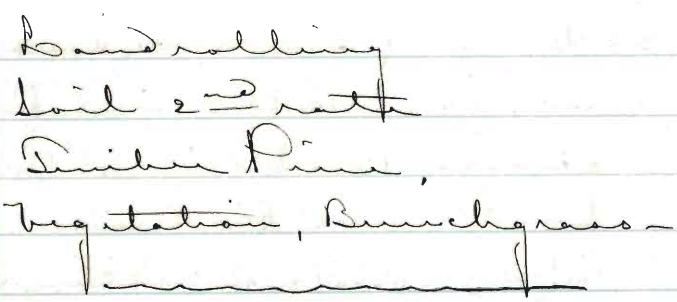 Land rolling
Soil 2nd rate
Timber Pine,
Vegetation, Bunchgrass-